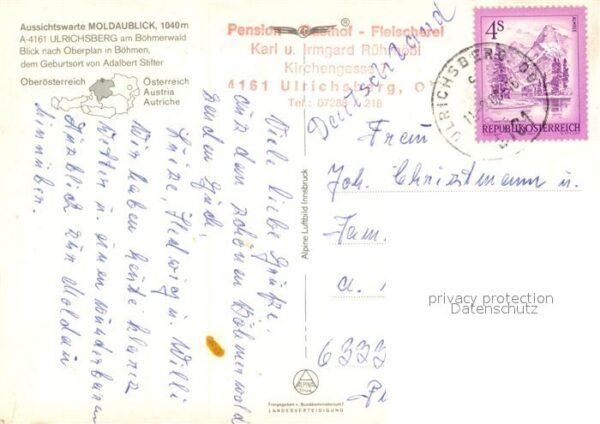 Aussichtswarte MOLDAUBLICK, 1040m
A-4161 ULRICHSBERG am Böhmerwald
Blick nach Oberplan in Böhmen,
dem Geburtsort von Adalbert Stifter
Oberösterreich
Österreich
Austria
Autriche
Pension - Gasthof - Fleischerei
Karl u. Irmgard
Kirchengasse
4161 Ulrichsberg, O
Tel.: 07288 218
Deutschland
4S
REPUBLIK ÖSTERREICH
ULRICHSBERG
Viele liebe Grüße
aus dem schönen Böhmerwald
senden Euch,
Hedwig u. Willi
Wir haben heute klares
Wetter u. einen wunderbaren
Ausblick zur Moldau
hinüber.
Alpine Luftbild Innsbruck
Frau
Joh. Christmann u.
Fam.
6333
privacy protection
Datenschutz
ALPINE
Freigegeben v. Bundesministerium f.
LANDESVERTEIDIGUNG